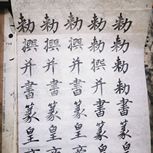 勅勅勅書篆皇
勅撰并書篆皇
勅撰并書篆皇
勅撰并書篆皇
勅撰并書篆皇